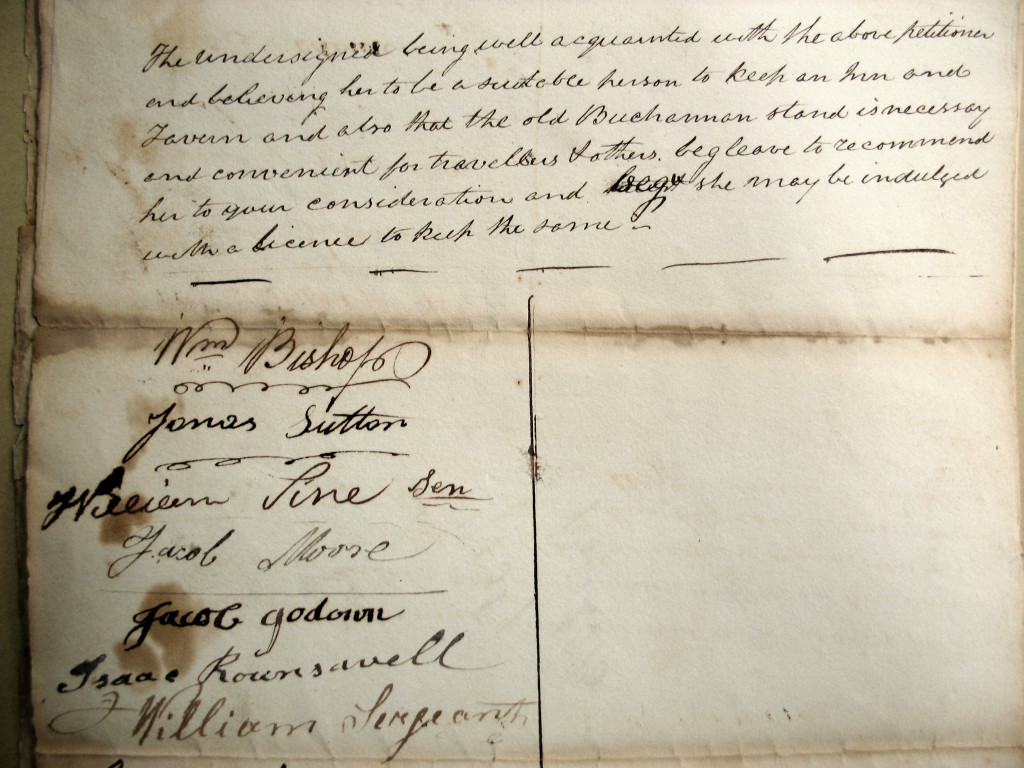 The undersigned being well acquainted with the above petitioner
and believing her to be a suitable person to keep an Inn and
Tavern and also that the old Buchannan stand is necessary
and convenient for travellers & others. beg leave to recommend
her to your consideration and she may be indulged
with a licence to keep the same
Wm Bishop
Jonas Sutton
William Sine Sen
Jacob Moore
Jacob Godown
Isaac Rounsavell
William Sergeant